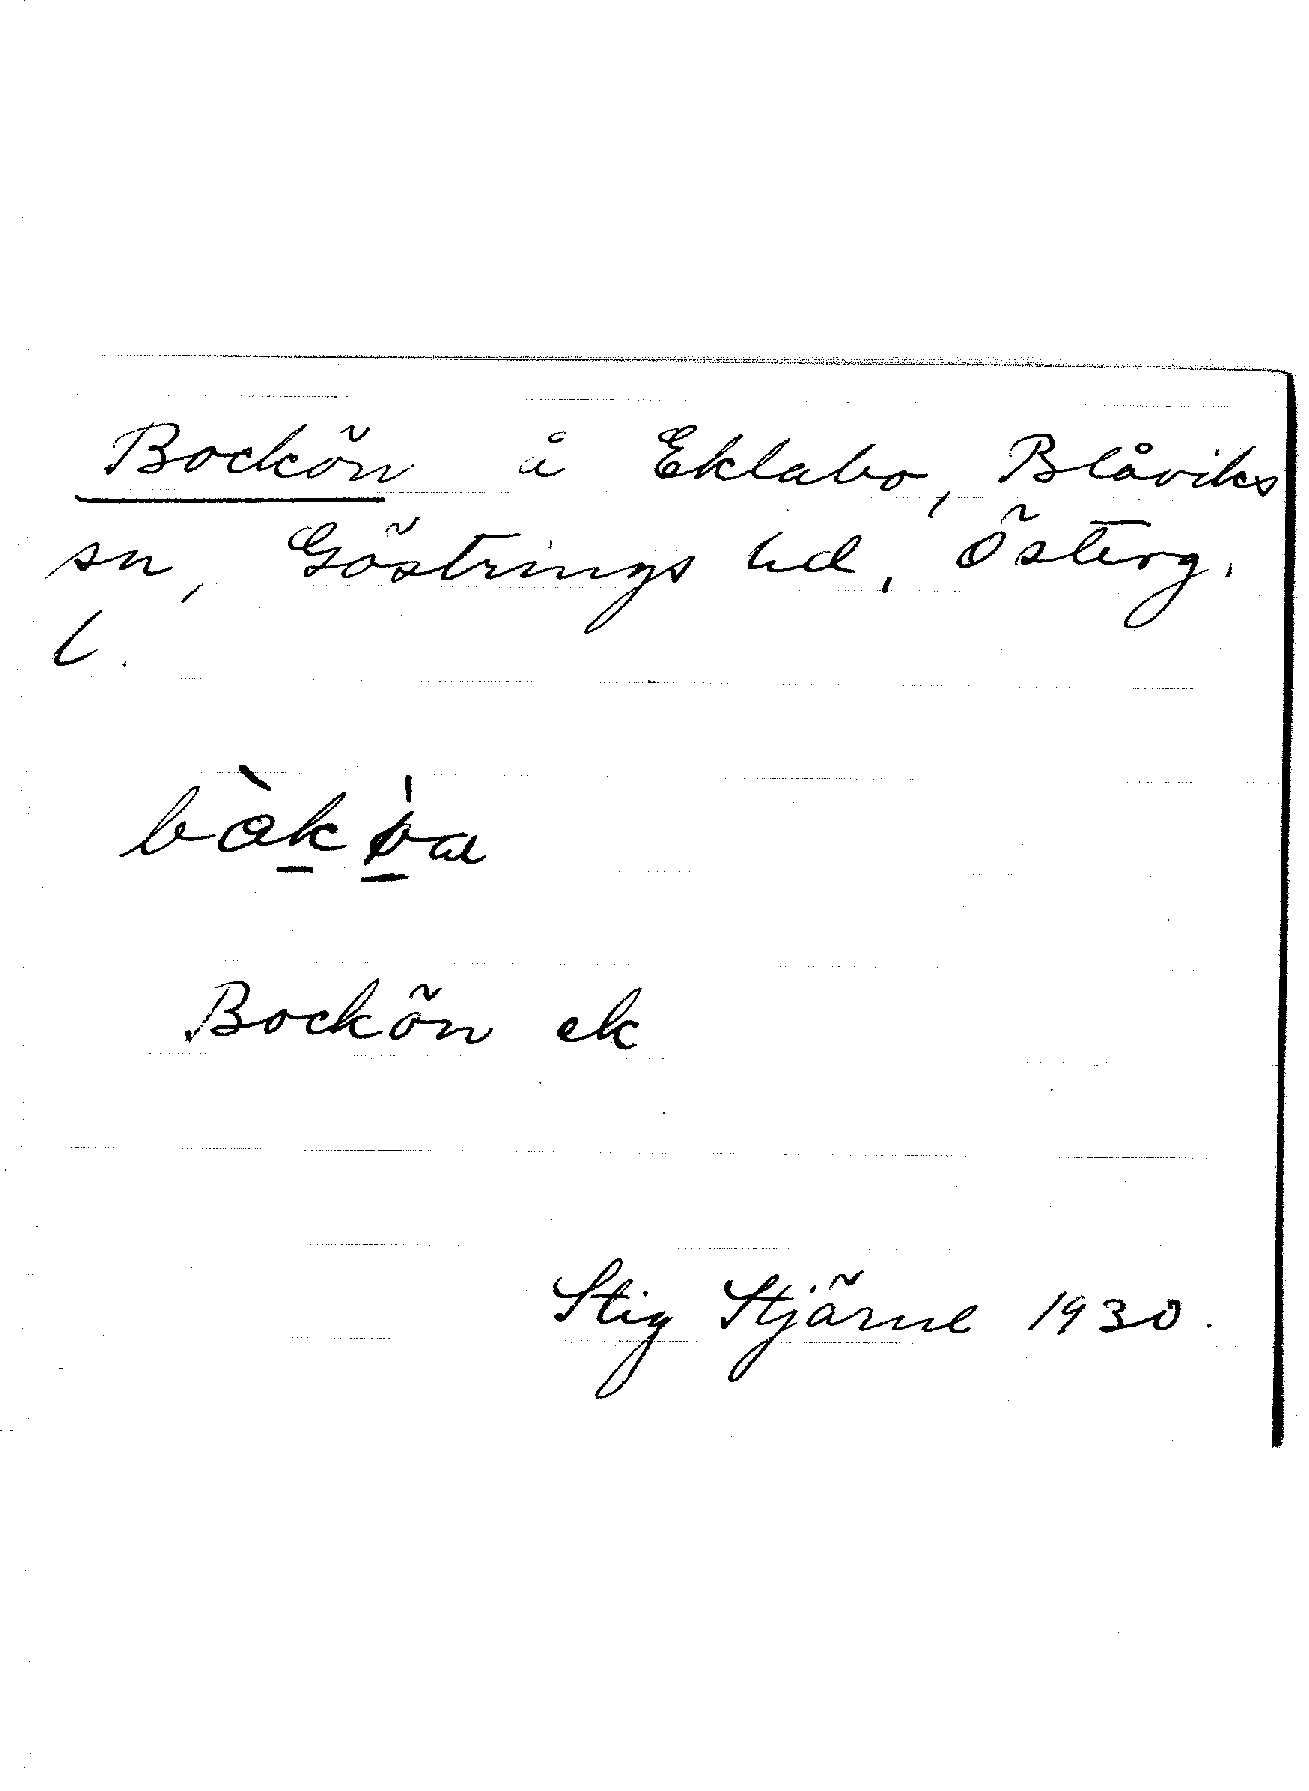 Bockön å Eklabo, Blåviks
sn, Göstrings hd, Österg.
l.
bàkøa
Bockön ek
Stig Stjärne 1930.